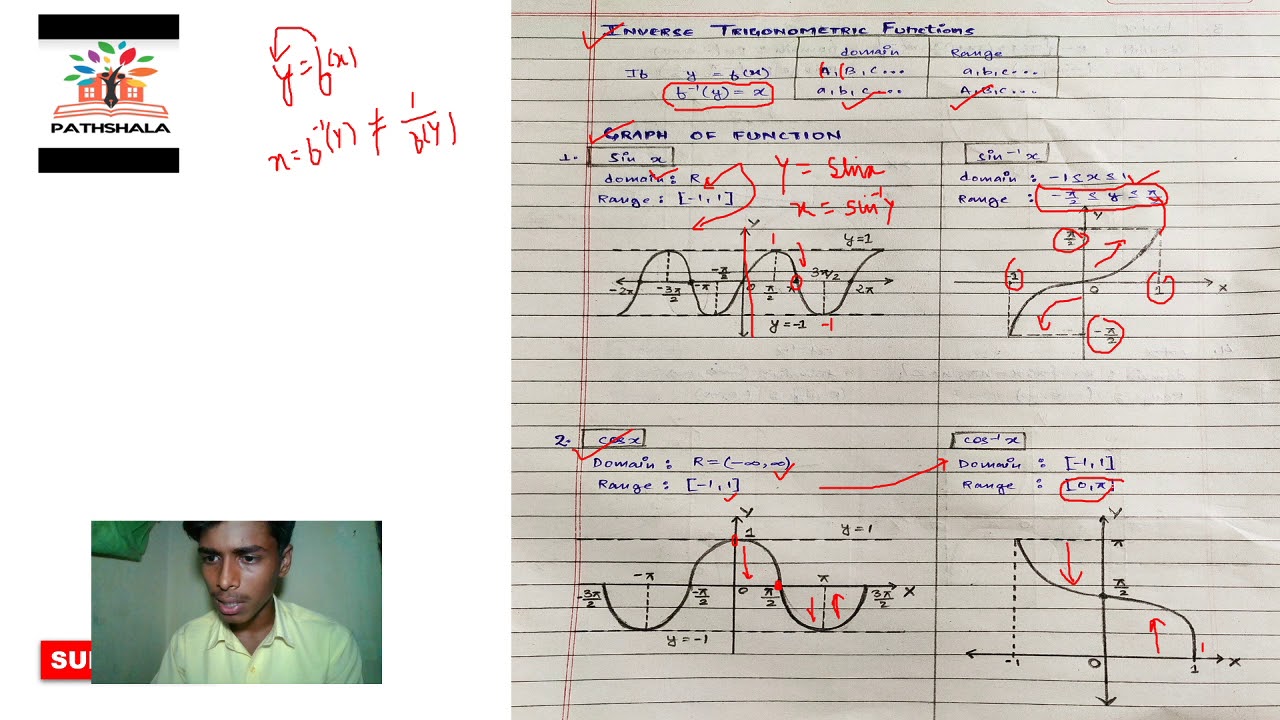 PATHSHALA
y = f(x)
x = f⁻¹(y) ≠ 1/f(y)
SU
INVERSE TRIGONOMETRIC Functions
domain Range
If y = f(x) A, B, C... a, b, c...
f⁻¹(y) = x a, b, c... A, B, C...
GRAPH OF FUNCTION
1. sin x
domain: R
Range: [-1, 1]
Y = sinx
x = sin⁻¹y
Y
1
y=1
-2π -3π/2 -π -π/2 0 π/2 π 3π/2 2π
y=-1 -1
sin⁻¹ x
domain : -1 ≤ x ≤ 1
Range : -π/2 ≤ y ≤ π/2
Y
π/2
-1 0 1 X
-π/2
2. cosx
Domain: R = (-∞, ∞)
Range: [-1, 1]
Y
1 y=1
-3π/2 -π -π/2 0 π/2 π 3π/2 X
y=-1
cos⁻¹x
Domain : [-1, 1]
Range : [0, π]
Y
π
π/2
1
-1 0 1 X